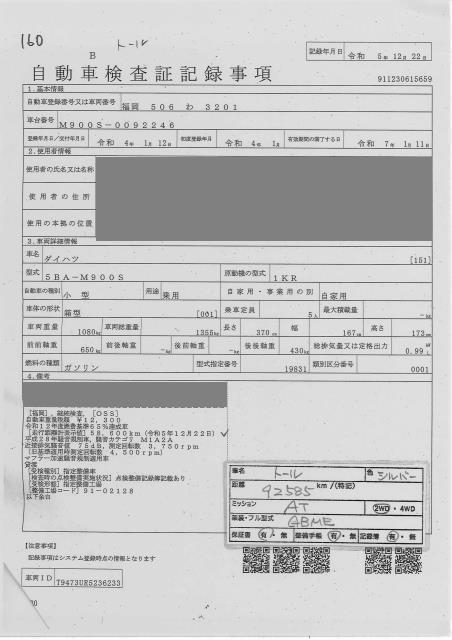 160
B トール
記録年月日 令和 5年 12月 22日
自動車検査証記録事項
911230615659
1.基本情報
自動車登録番号又は車両番号 福岡 506 わ 3201
車台番号 M900S-0092246
登録年月日/交付年月日 令和 4年 1月 12日 初度登録年月 令和 4年 1月 有効期間の満了する日 令和 7年 1月 11日
2.使用者情報
使用者の氏名又は名称
使用者の住所
使用の本拠の位置
3.車両詳細情報
車名 ダイハツ [151]
型式 5BA-M900S 原動機の型式 1KR
自動車の種別 小型 用途 乗用 自家用・事業用の別 自家用
車体の形状 箱型 [001] 乗車定員 5人 最大積載量 -kg
車両重量 1080kg 車両総重量 1355kg 長さ 370cm 幅 167cm 高さ 173cm
前前軸重 650kg 前後軸重 -kg 後前軸重 -kg 後後軸重 430kg 総排気量又は定格出力 0.99
燃料の種類 ガソリン 型式指定番号 19831 類別区分番号 0001
4.備考
[福岡],継続検査,[OSS]
自動車重量税額 ¥12,300
令和12年度燃費基準65%達成車
[走行距離計表示値]58,600km(令和5年12月22日)
平成28年騒音規制車,騒音カテゴリ M1A2A
近接排気騒音値 75dB,測定回転数 3,750rpm
[旧基準適用時測定回転数 4,500rpm]
マフラー加速騒音規制適用車
貸渡
[受検種別]指定整備車
[検査時の点検整備実施状況]点検整備記録簿記載あり
[受検形態]指定整備工場
[整備工場コード]91-02128
以下余白
車名 トール 色 シルバー
距離 92585 km/(特記)
ミッション AT 2WD・4WD
架装・フル型式 GBME
保証書 有・無 整備手帳 有・無 記録簿 有・無
[注意事項]
記録事項はシステム登録時点の情報となります
車両ID T9473UR5236233